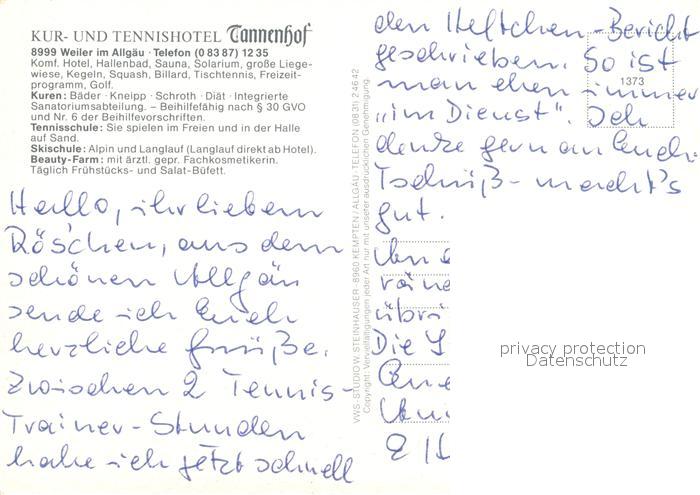 KUR- UND TENNISHOTEL Tannenhof
8999 Weiler im Allgäu · Telefon (0 83 87) 12 35
Komf. Hotel, Hallenbad, Sauna, Solarium, große Liege-
wiese, Kegeln, Squash, Billard, Tischtennis, Freizeit-
programm, Golf.
Kuren: Bäder · Kneipp · Schroth · Diät · Integrierte
Sanatoriumsabteilung. – Beihilfefähig nach § 30 GVO
und Nr. 6 der Beihilfevorschriften.
Tennisschule: Sie spielen im Freien und in der Halle
auf Sand.
Skischule: Alpin und Langlauf (Langlauf direkt ab Hotel).
Beauty-Farm: mit ärztl. gepr. Fachkosmetikerin.
Täglich Frühstücks- und Salat-Büfett.
Hallo, ihr lieben
Rös'chen, aus dem
schönen Allgäu
sende ich Euch
herzliche Grüße.
Zwischen 2 Tennis-
Trainer-Stunden
habe ich jetzt schnell
VWS-STUDIO W. STEINHAUSER · 8960 KEMPTEN/ALLGÄU · TELEFON (0831) 2 46 42
Copyright: Vervielfältigungen jeder Art nur mit unserer ausdrücklichen Genehmigung.
den Heftchen-Bericht
geschrieben. So ist
man eben immer
1373
"im Dienst". Ich
denke gern an Euch.
Tschüß - macht's
gut.
übri
Die
privacy protection
Datenschutz